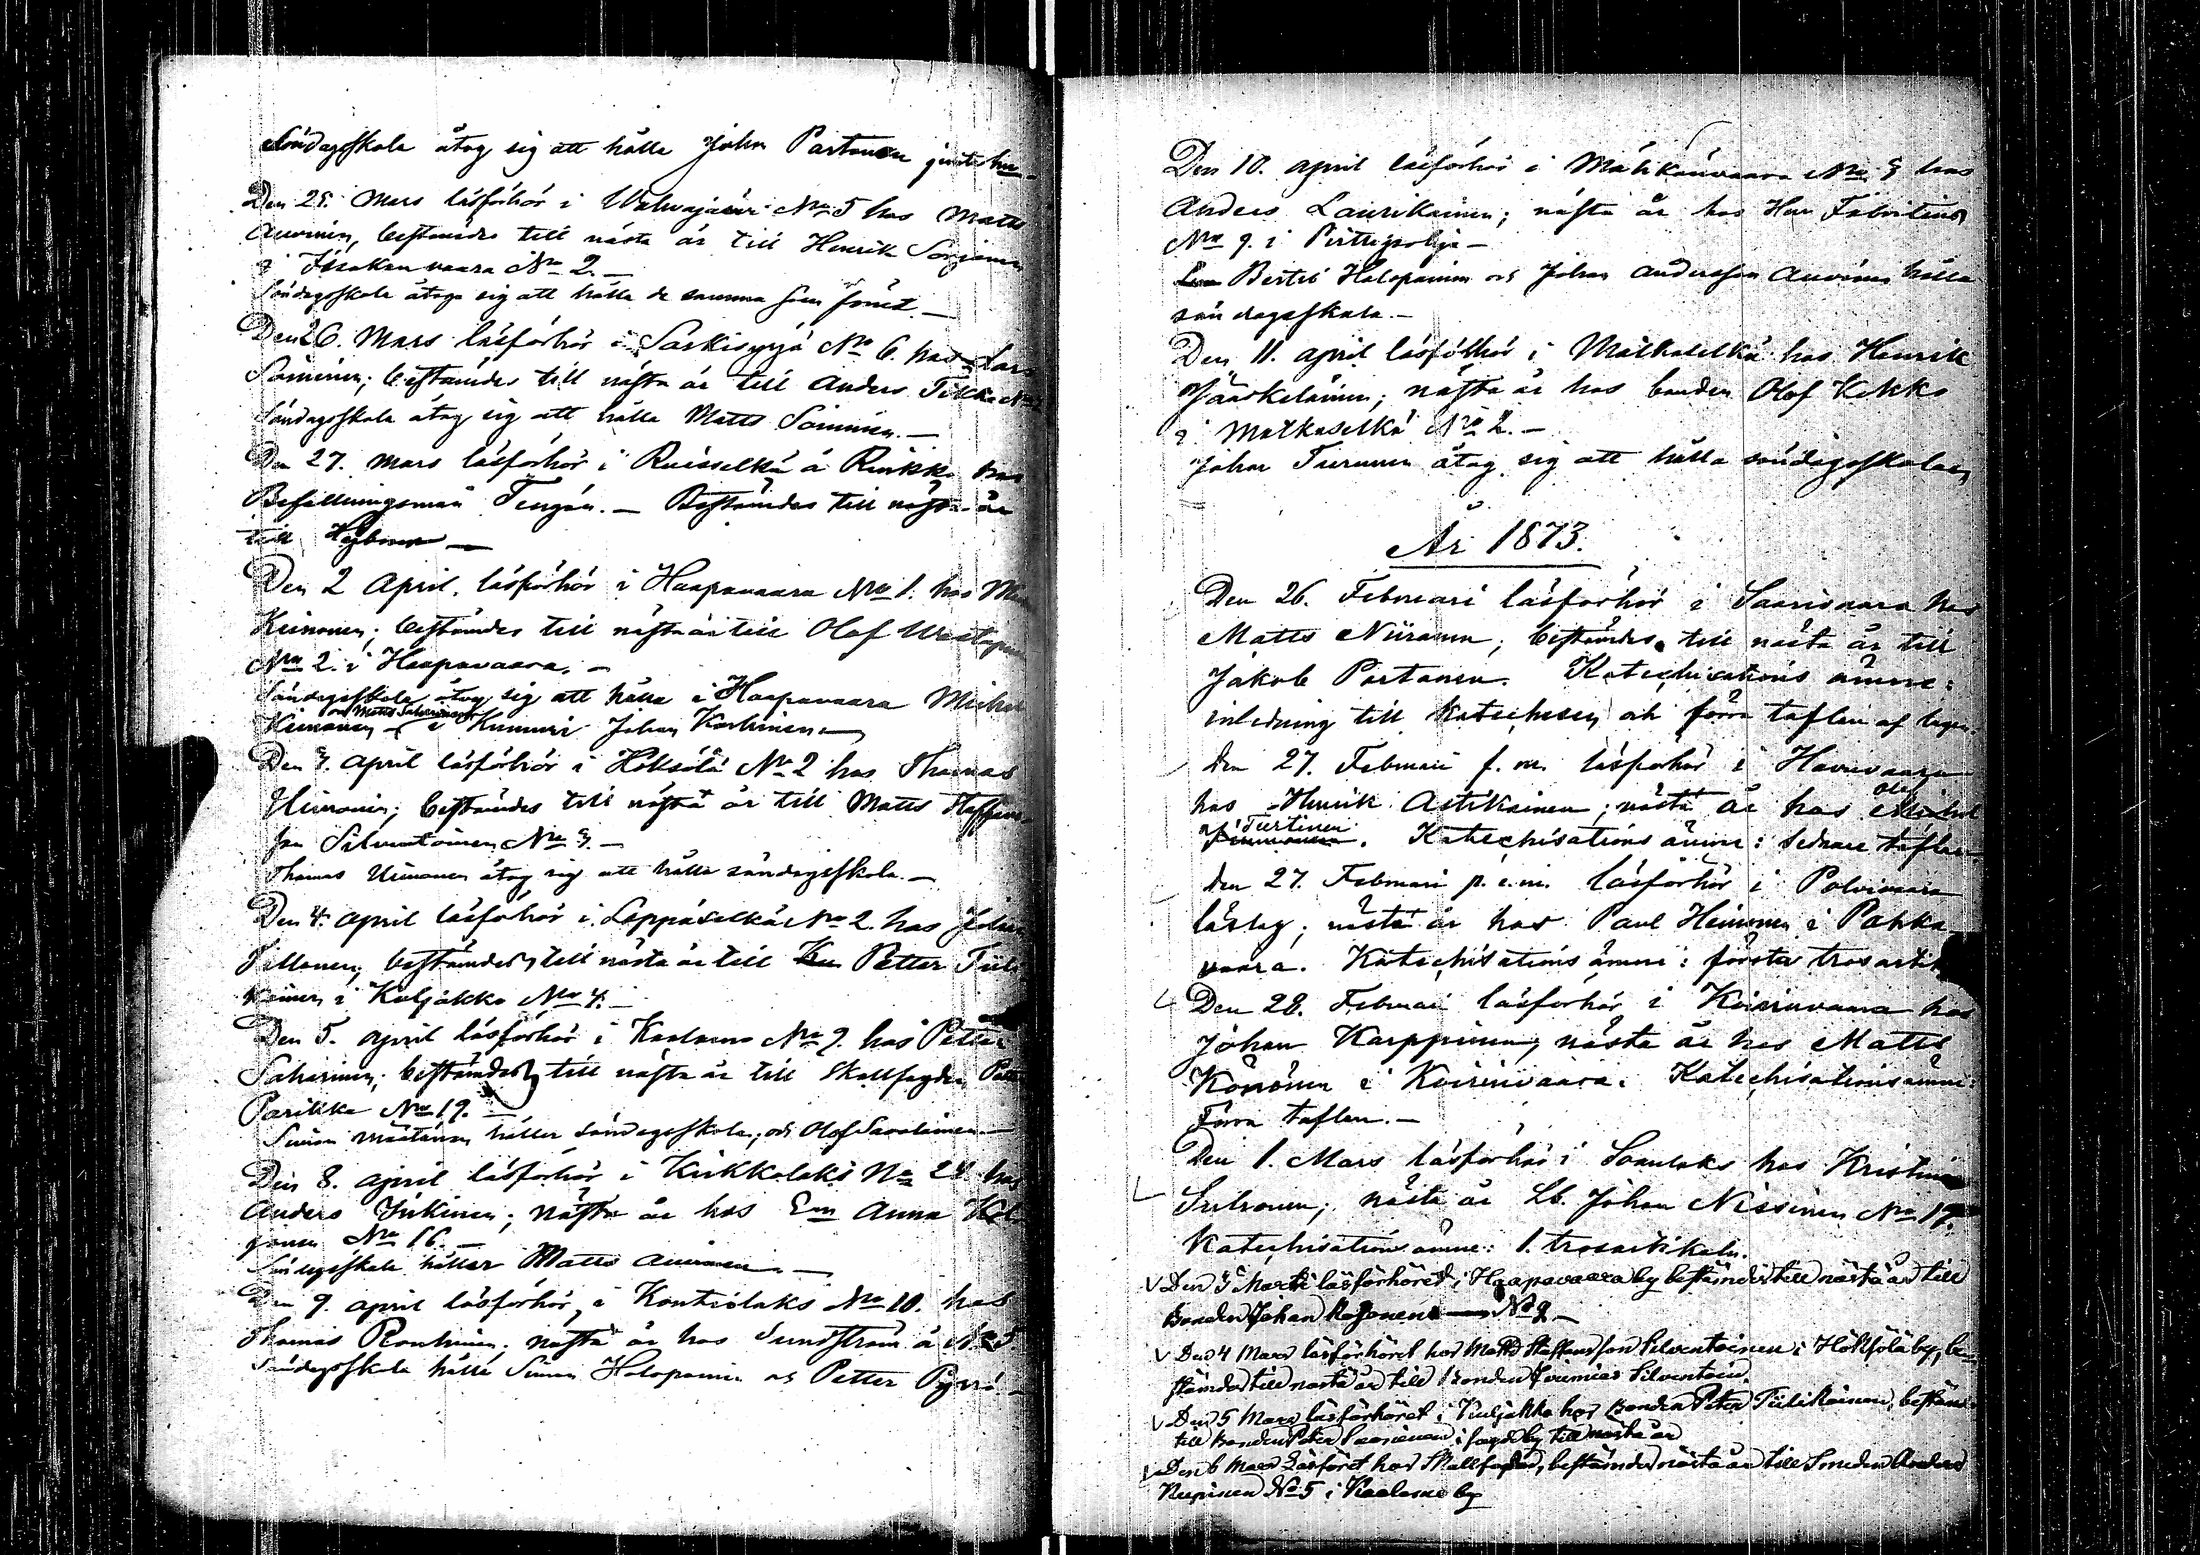 Söndagsskola åtog sig att hålla Johan Partanen
Den 25. Mars läsförhör i No 5 hos Matts
Auvinen, bestämdes till nästa år till Henrik Sorjonen
i Issakanvaara No 2. —
Söndagsskola åtogo sig att hålla de samma som förut. —
Den 26. Mars läsförhör i Särkisyrjä No 6. hos Lars
Söminen; bestämdes till nästa år till Anders Tikka
Söndagsskola åtog sig att hålla Matts Söminen. —
Den 27. Mars läsförhör i Ruisselkä å Rinkka hos
Befallningsman Tengén. — Bestämdes till nästa år
till
Den 2 April. läsförhör i Haapavaara No 1. hos
Keinonen; bestämdes till nästa år till Olof
No 2. i Haapavaara. —
Söndagsskola åtog sig att hålla i Haapavaara Michel
och Matts
Keinonen — i Kummuri Johan
Den 3. April läsförhör i Höksölä No 2 hos Thomas
bestämdes till nästa år till Matts Staffans
son Silventoinen No 3. —
Thomas åtog sig att hålla söndagsskola. —
Den 4. April läsförhör i Loppäselkä No 2. hos Johan
bestämdes till nästa år till Petter Tiili
kainen i Kuljakko No 4. —
Den 5. April läsförhör i Kaalamo No 9. hos Petter
Saharinen; bestämdes till nästa år till Skallfogden
Parikka No 19. —
Simon håller söndagsskola, och Olof Savolainen. —
Den 8. April läsförhör i Kirkkolaks No 24 hos
Anders nästa år hos Enn Anna
No 16. —
Söndagsskola håller Matts Auvinen. —
Den 9. April läsförhör i Kontiolaks No 10. hos
Thomas nästa år hos Sundström å No 5
Söndagsskola hålla Simon Holopainen och Petter
Den 10. April läsförhör i Mähkönvaara No 3 hos
Anders Laurikainen; nästa år hos Herr Fabritius
No 9. i Pirttipohja —
Bertel Holopainen och Johan Andersson Auvinen hålla
söndagsskola. —
Den 11. April läsförhör i Matkaselkä hos Henrik
Jääskeläinen; nästa år hos bonden Olof Kekko
i Matkaselkä No 2. —
Johan Turunen åtog sig att hålla söndagsskolan
År 1873.
Den 26. Februari läsförhör i Saarivaara hos
Matts Niiranen; bestämdes till nästa år till
Jakob Partanen. Katechisations ämne:
inledning till Katechesen och förra taflan af lagen.
Den 27. Februari f. m. läsförhör i Havuvaara
hos Henrik Astikainen; nästa år hos Olof
Turtinen. Katechisations ämne: sednare taflan
Den 27. Februari p. e. m. läsförhör i Polvivaara
låslag; nästa år hos Paul Heinonen i Pahka
vaara. Katechisations ämne: första trosartik
Den 28. Februari läsförhör i Koirinvaara hos
Johan Karppinen, nästa år hos Matts
Könönen i Koirinvaara. Katechisationsämne:
Förra taflan. —
Den 1. Mars läsförhör i Soanlaks hos Kristina
Sutinen; nästa år Lb. Johan Nissinen No 19.
Katechisationsämne: 1. trosartikeln.
Den 3 Mars läsförhöret i Haapavaara by bestämdes till nästa år till
Bonden Johan — No 9 —
Den 4 Mars läsförhöret hos Matts Staffansson Silventoinen i Höksölä by, be-
stämdes till nästa år till Bonden Jeremias Silventoin.
Den 5 Mars läsförhöret i Kuljakko hos Bonden Peter Tiilikainen, bestäm
till Bonden Peter i by till nästa år
Den 6 Mars Läsföret hos Skallfogden, bestämdes nästa år till Smeden Anders
No 5 i Kaalamo by